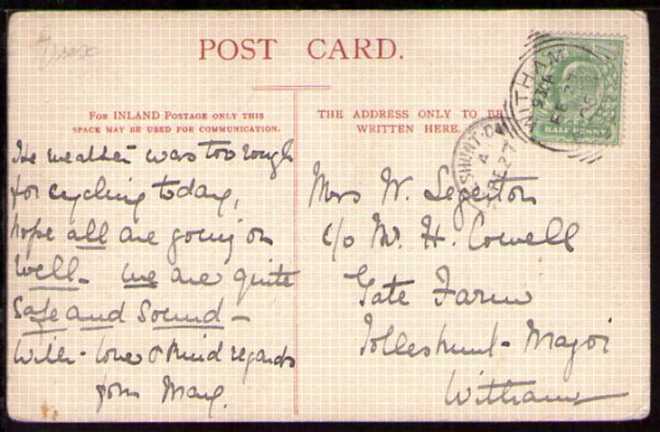 POST CARD.
FOR INLAND POSTAGE ONLY THIS
SPACE MAY BE USED FOR COMMUNICATION.
THE ADDRESS ONLY TO BE
WRITTEN HERE.
The weather was too rough
for cycling today,
hope all are going on
well - we are quite
safe and sound -
with - love & kind regards
from May.
Mrs W. Segerton
c/o Mr. H. Cowell
Gate Farm
Tolleshunt - Major
Witham
WITHAM
HALF PENNY